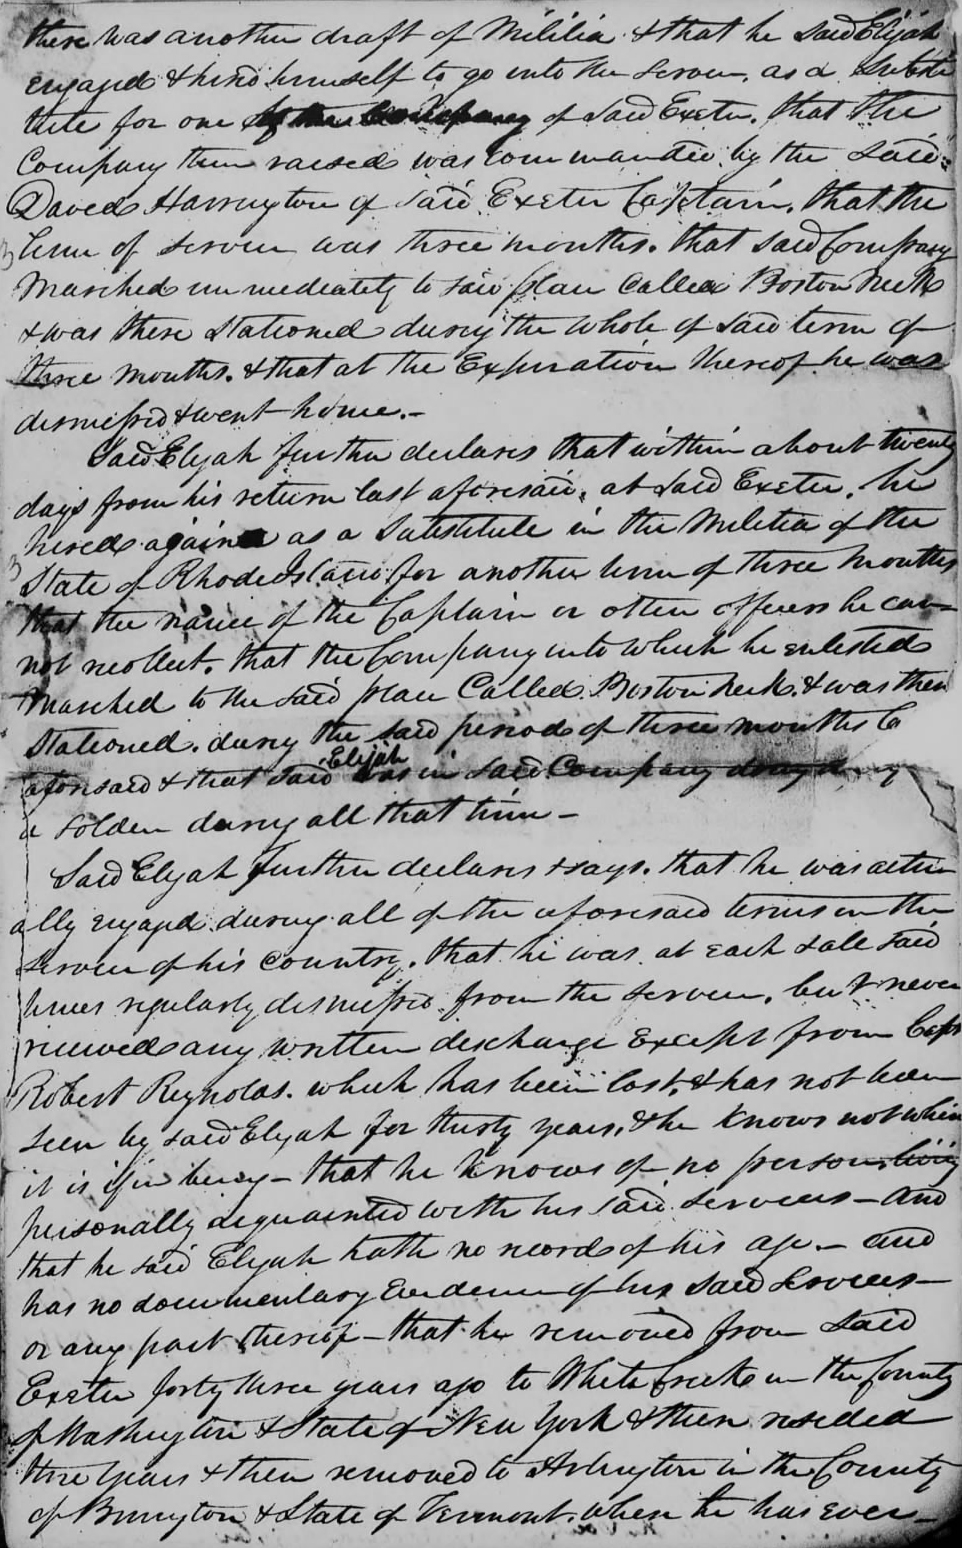 there was another draft of Militia & that he said Elijah
engaged & hired himself to go into the service, as a substi
tute for one of the Company of said Exeter. that the
Company then raised was commanded by the said
David Harrington of said Exeter Captain. that the
3 term of service was three months. that said Company
marched immediately to said place called Boston Neck
& was there stationed during the whole of said term of
three months. & that at the Expiration thereof he was
dismissed & went home.–
Said Elijah further declares that within about twenty
days from his return last aforesaid, at said Exeter, he
hired again as a substitute in the Militia of the
3 State of Rhode Island for another term of three months
that the name of the Captain or other officers he can=
not recollect. that the Company into which he enlisted
marched to the said place Called Boston Neck. & was then
stationed. during the said period of three months
aforesaid & that said Elijah was in said Company
a soldier during all that time –
Said Elijah further declares & says. that he was actu
ally engaged during all of the aforesaid terms in the
service of his country. that he was at each said
times regularly dismissed from the service. but never
received any written discharge Except from Capt
Robert Reynolds. which has been lost, & has not been
seen by said Elijah for thirty years, & he knows not where
it is if in being – that he knows of no person living
personally acquainted with his said services – and
that he said Elijah hath no record of his age – and
has no documentary Evidence of his said services –
or any part thereof – that he removed from said
Exeter forty three years ago to White Creek in the County
of Washington & State of New York & then resided
three years & then removed to Arlington in the County
of Bennington & State of Vermont. where he has ever –